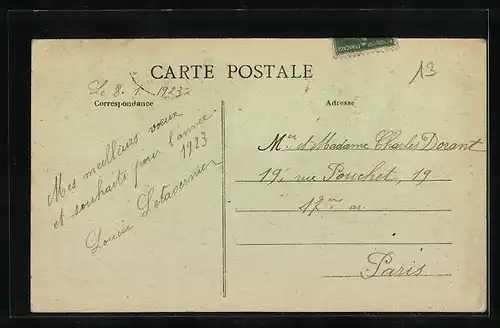 13
CARTE POSTALE
Le 8. 1. 1923
Correspondance
Adresse
Mes meilleurs voeux
et souhaits pour l'année
1923
Louise Letavernier
Mr et Madame Charles Dorant
19, rue Pouchet, 19
17me ar.
Paris